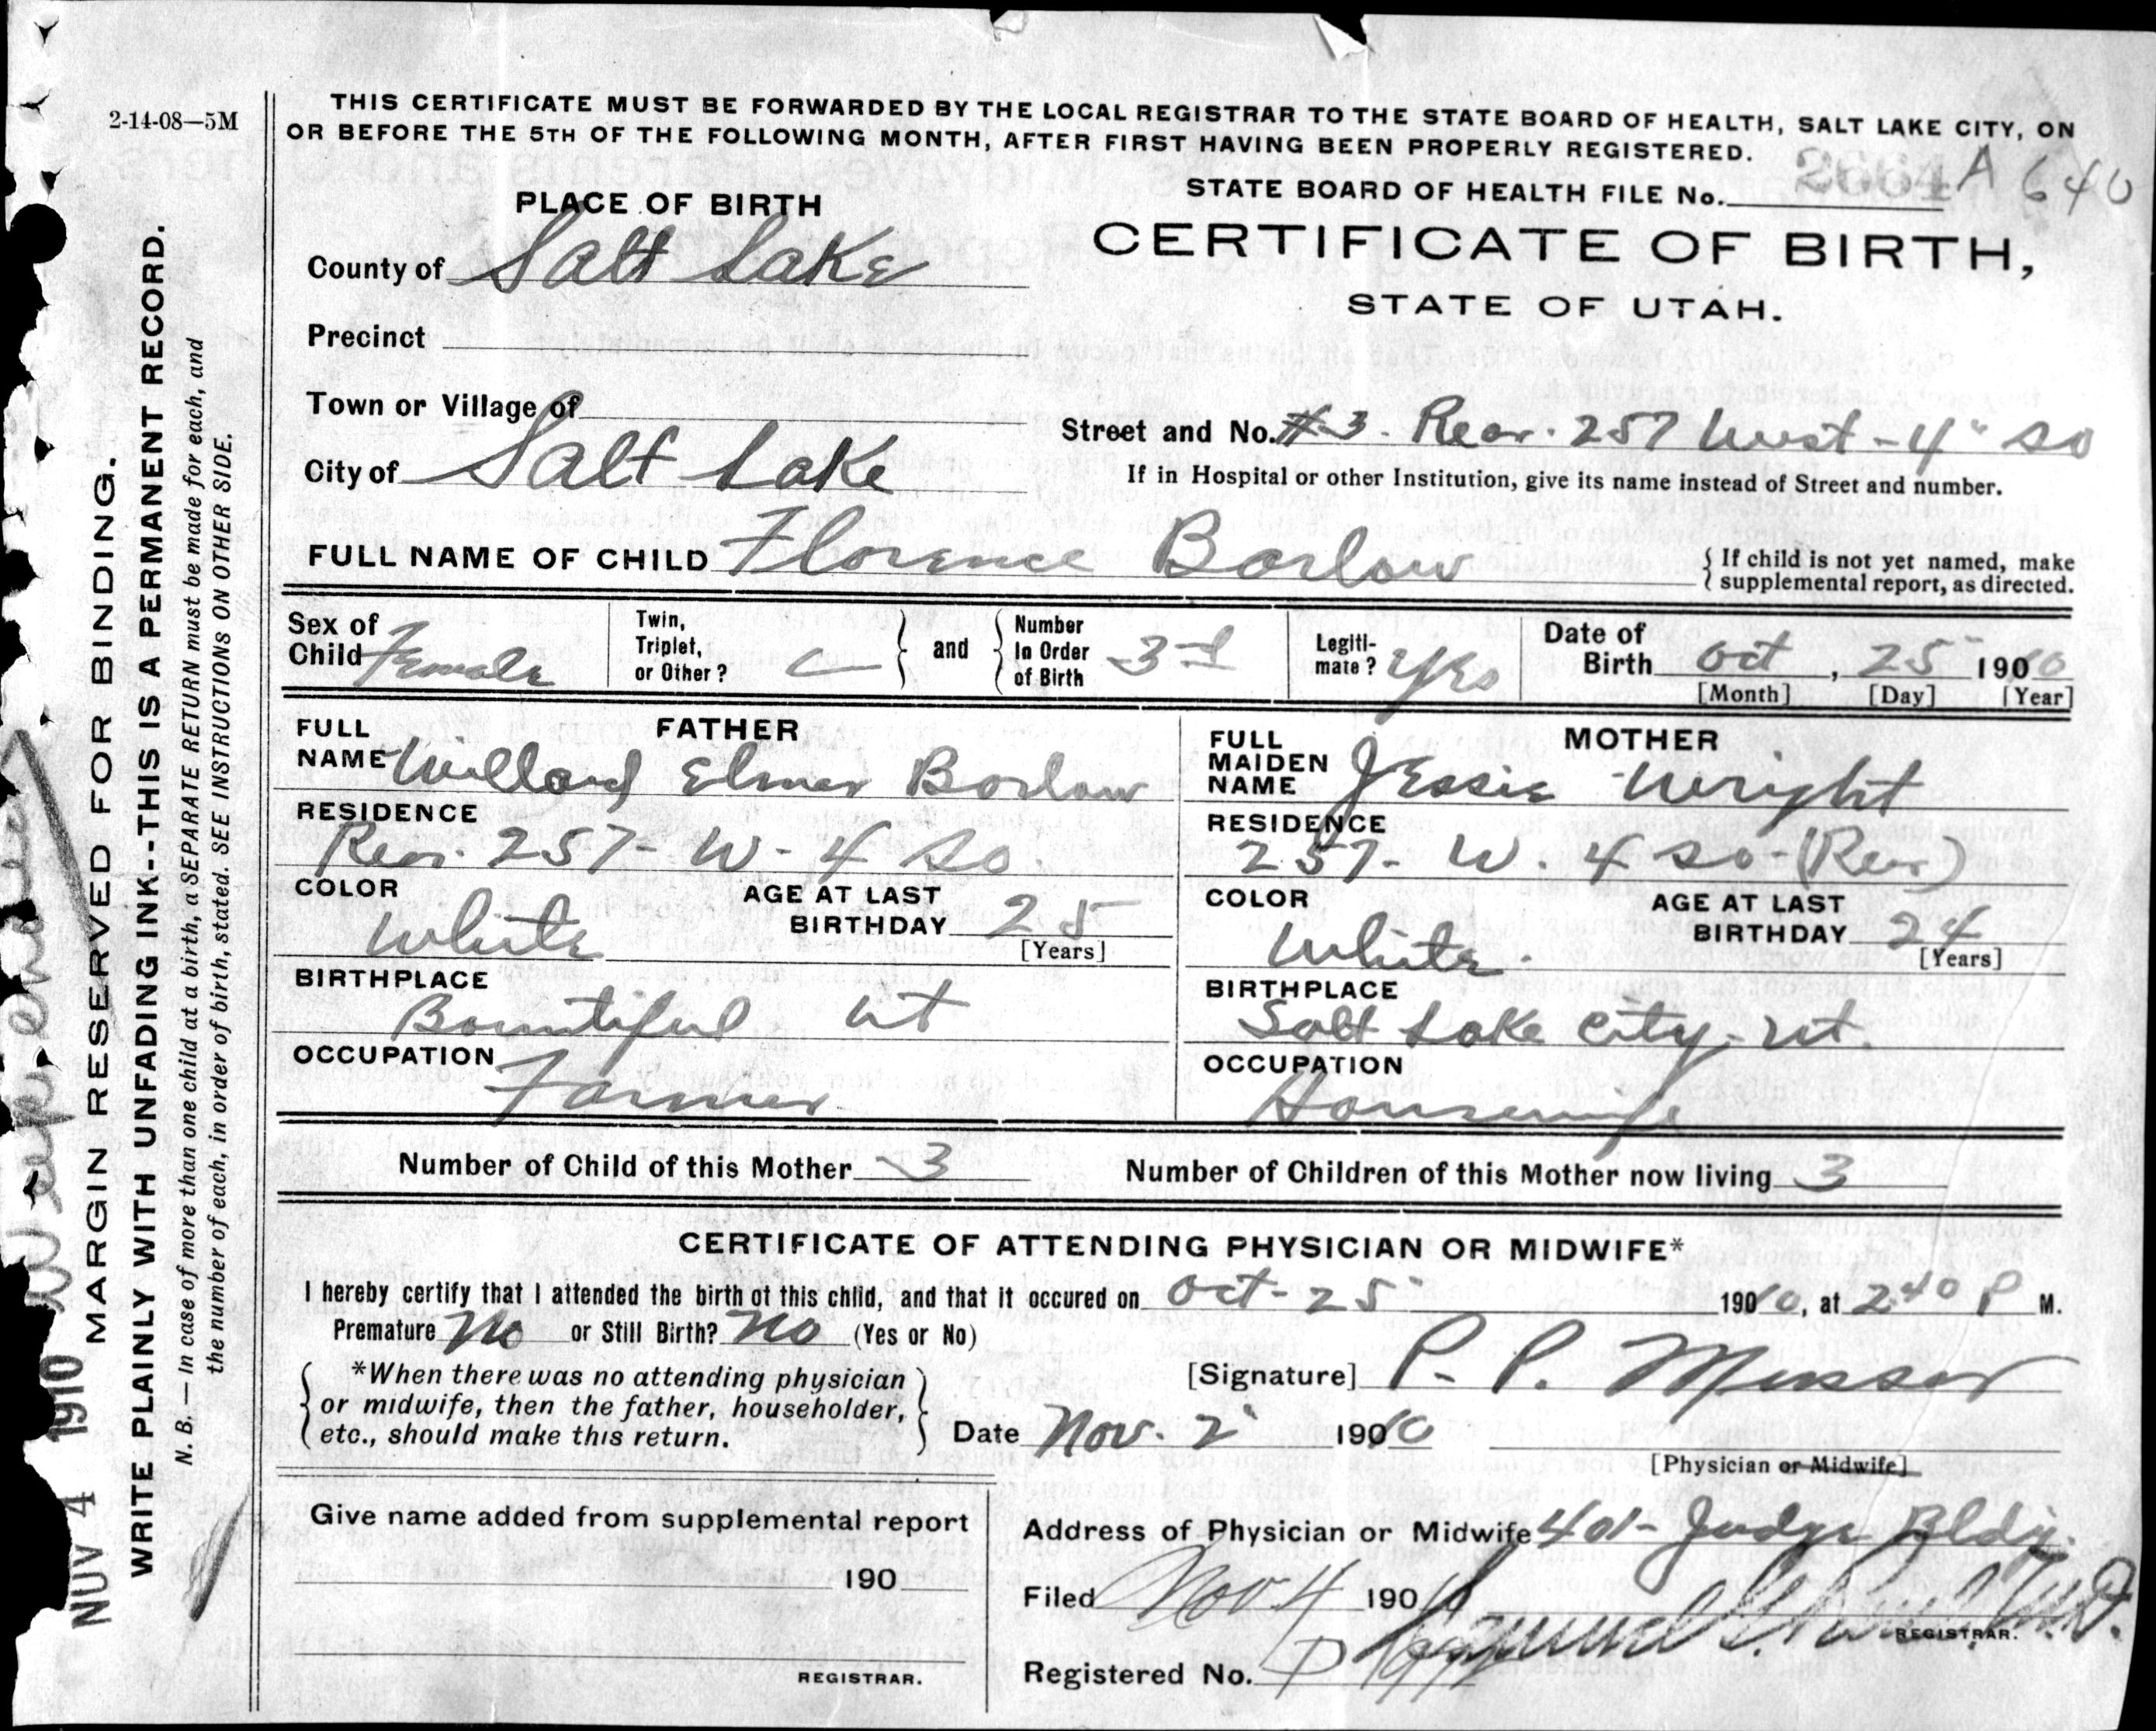 2-14-08—5M
THIS CERTIFICATE MUST BE FORWARDED BY THE LOCAL REGISTRAR TO THE STATE BOARD OF HEALTH, SALT LAKE CITY, ON
OR BEFORE THE 5TH OF THE FOLLOWING MONTH, AFTER FIRST HAVING BEEN PROPERLY REGISTERED.
STATE BOARD OF HEALTH FILE No. 2664 A 640
CERTIFICATE OF BIRTH,
STATE OF UTAH.
PLACE OF BIRTH
County of Salt Lake
Precinct
Town or Village of
City of Salt Lake
Street and No. #3. Rear. 257 West - 4" So
If in Hospital or other Institution, give its name instead of Street and number.
FULL NAME OF CHILD Florence Barlow
{ If child is not yet named, make
supplemental report, as directed.
Sex of Child Female
Twin, Triplet, or Other?
and
Number In Order of Birth 3rd
Legiti-mate? Yes
Date of Birth Oct, 25 1910
[Month] [Day] [Year]
FATHER
FULL NAME Willard Elmer Barlow
RESIDENCE
Rear. 257- W- 4 So.
COLOR White
AGE AT LAST BIRTHDAY 25
[Years]
BIRTHPLACE
Bountiful Ut
OCCUPATION
Farmer
MOTHER
FULL MAIDEN NAME Jessie Wright
RESIDENCE
257- W. 4 So-(Rear)
COLOR White.
AGE AT LAST BIRTHDAY 24
[Years]
BIRTHPLACE
Salt Lake City, Ut.
OCCUPATION
Housewife
Number of Child of this Mother 3
Number of Children of this Mother now living 3
CERTIFICATE OF ATTENDING PHYSICIAN OR MIDWIFE*
I hereby certify that I attended the birth of this child, and that it occured on Oct- 25 1910, at 2 40 P M.
Premature No or Still Birth? No (Yes or No)
*When there was no attending physician
or midwife, then the father, householder,
etc., should make this return.
[Signature] P. P. Musser
Date Nov. 2 1910
[Physician or Midwife]
Give name added from supplemental report
190
REGISTRAR.
Address of Physician or Midwife 401- Judge Bldg.
Filed Nov 4 1910
Samuel G. M.D.
REGISTRAR.
Registered No.
MARGIN RESERVED FOR BINDING.
WRITE PLAINLY WITH UNFADING INK--THIS IS A PERMANENT RECORD.
N. B.—In case of more than one child at a birth, a SEPARATE RETURN must be made for each, and
the number of each, in order of birth, stated. SEE INSTRUCTIONS ON OTHER SIDE.
NOV 4 1910